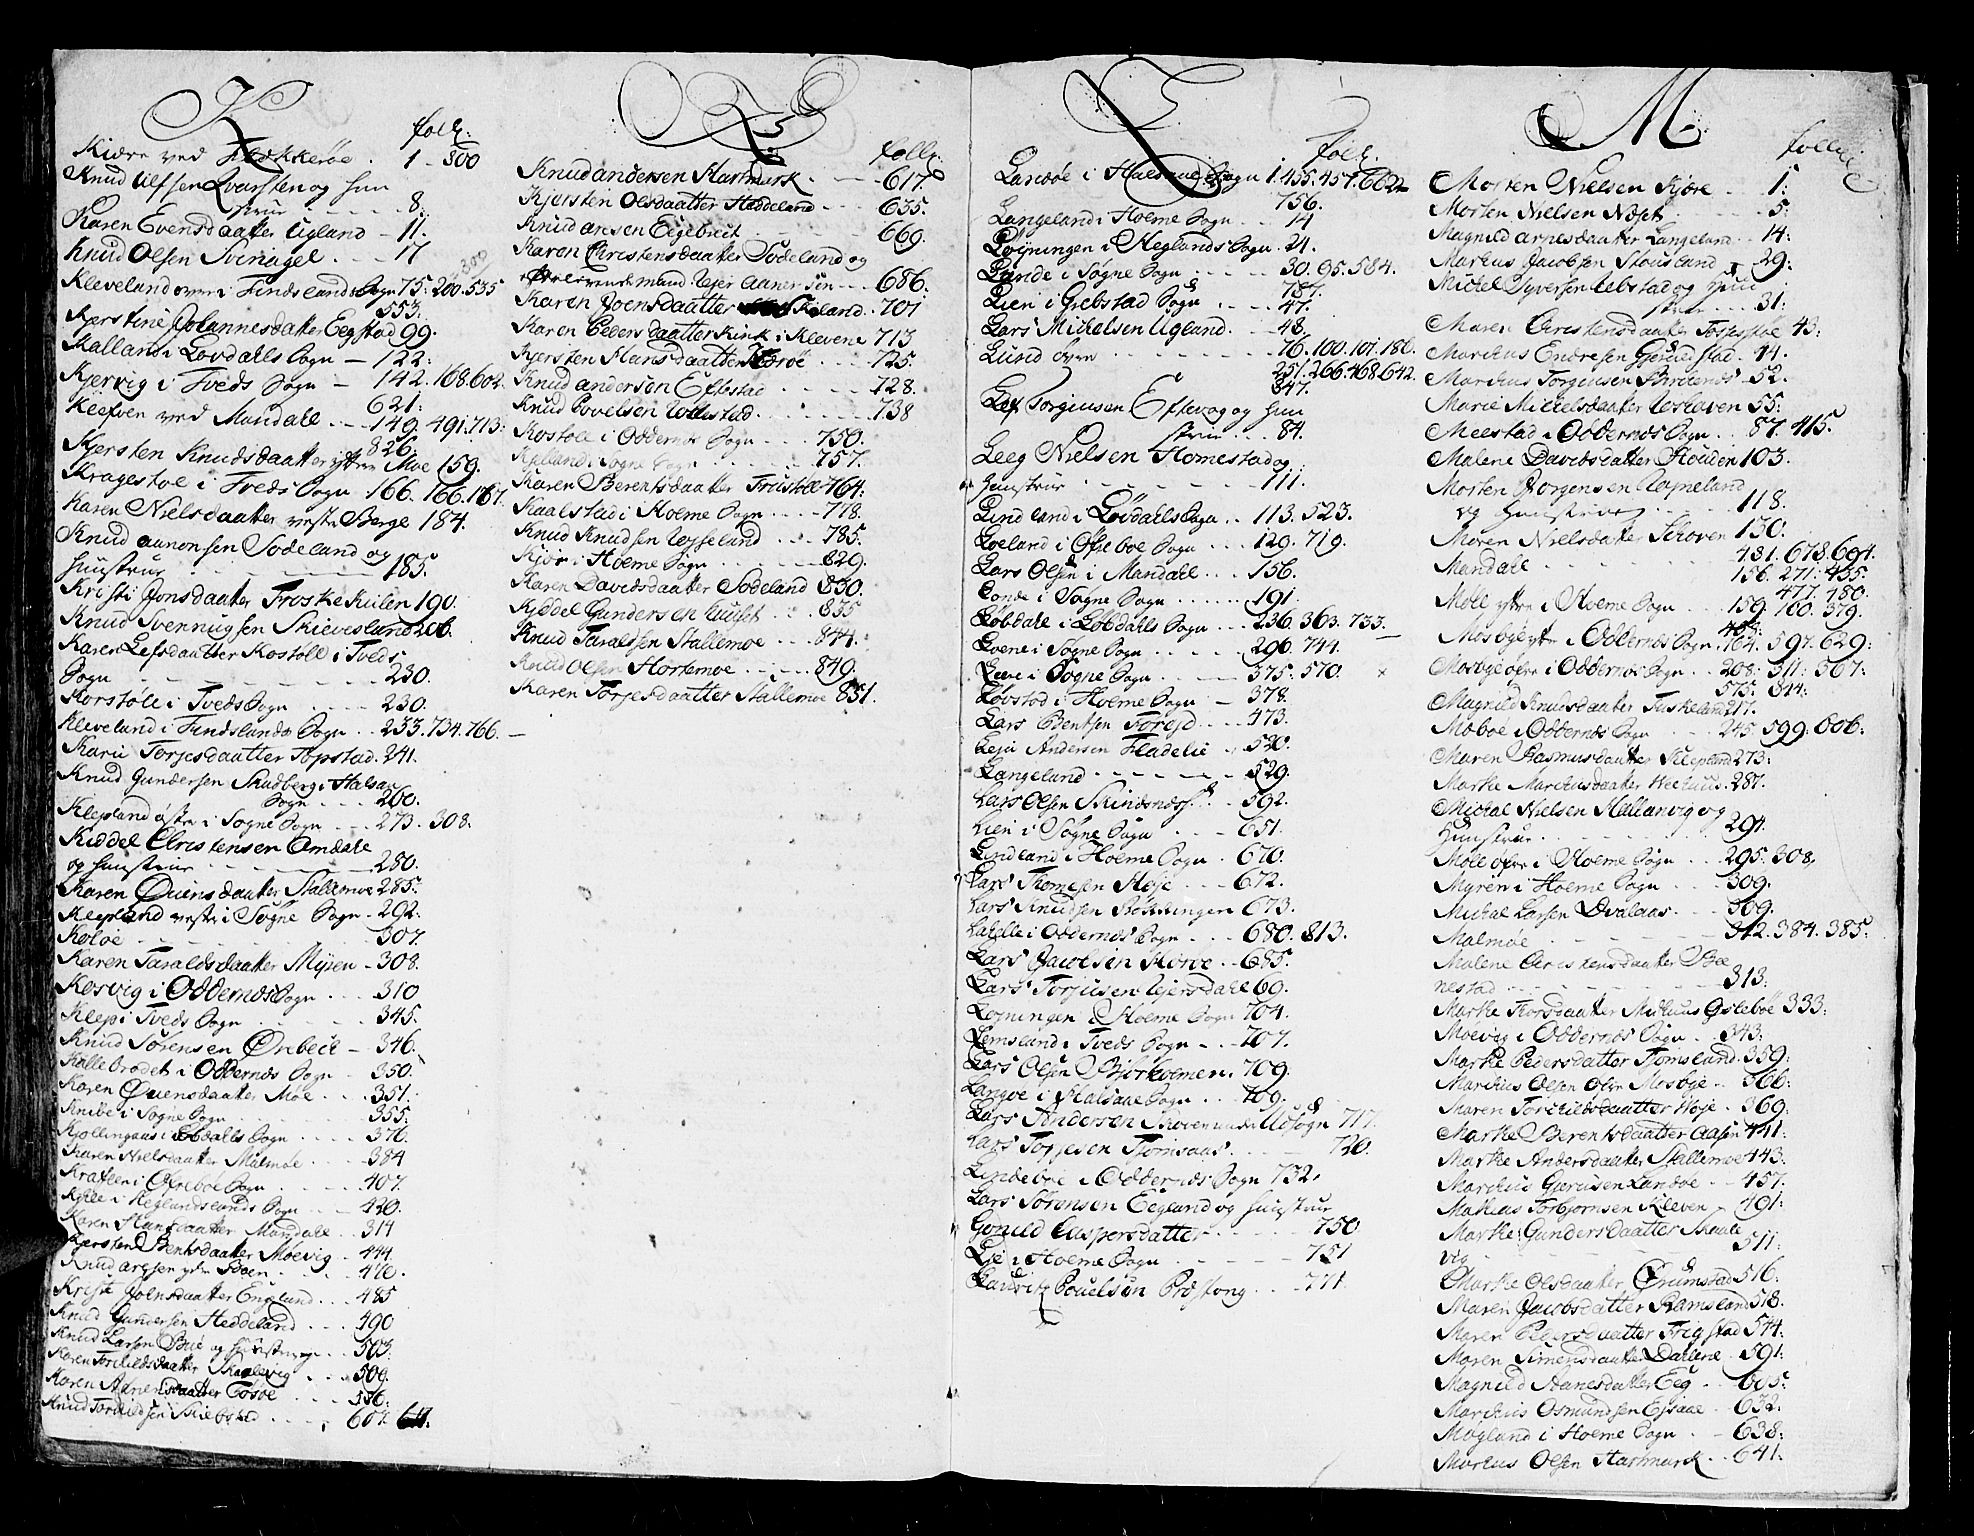 K
folk:
Kiære ved Flækkerøe . 1 - 300
Knud Ulfsen Qvarsten og hun
strue - - - - 8.
Karen Evensdaatter Ugland - 11.
Knud Olsen Svenagel . - - - 17
300
Kleveland over i Findslands Sogn 75. 200. 535
553.
Kierstine Johannesdatter Eegstad 99.
Kalland i Lovdalls Sogn - 122.
Kjervig i Tveds Sogn - 142. 168. 602.
621:
Kleefven ved Mandall . - - 149. 491. 713:
826.
Kjersten Knudsdaatter yttre Moe 159.
Kragestoe i Tveds Sogn 166. 166. 167.
Karen Nielsdaatter vestre Berge 184.
Knud aanonsen Sodeland og
hustrue - - - - - - 185.
Kristi Jonsdaatter Froskekiilen 190.
Knud Svennugsen Skieveslund 206.
Karen Lefsdaatter Kostoll i Tveds
Sogn - - - - - - 230.
Korstole i Tveds Sogn - - - - 230.
Kleveland i Findslands Sogn . . 233. 734. 766.
Karii Torjesdaatter Topstad. 241.
Knud Gundersen Skudberg i Halsaa
Sogn - - - 260.
Klepland østre i Sogne Sogn . - - 273. 308.
Kiddel Christensen Omdale
og hustrue - - - - - 280.
Karen Ouensdaatter Stallemoe 285.
Klepland vestre i Søgne Sogn - 292.
Koloe - - - - - - 307.
Karen Taraldsdaatter Mysen - 308.
Kosvig i Oddernes Sogn . . . 310
Klep i Tveds Sogn - - - - 345.
Knud Sørensen Ørebeck - 346.
Kallebrodet i Oddernes Sogn - - 350.
Karen Ouensdaatter Moe . . 351.
Knibe i Sogne Sogn - - - - - 355.
Kjollingaas i Lobdalls Sogn - - - - 376.
Karen Nielsdaatter Malmøe . - - - 384
Kratlen i Øvreboe Sogn . - - - 407.
Kyle i Heglandslands Sogn . . . 420.
Karen Hansdaatter Mandall . . 314
Kjersten Bentsdaatter Moevig . 444.
Knud aressen ydre Boen . . . . . 470.
Kristi Joensdaatter Engeland . . . 485
Knud Gundersen Heddeland . . . 490
Knud Larsen Boe og hustrue . . 503.
Karen Torkildsdaatter Skaglevig . . . 509.
Karen Adriensdaatter Tosøe . . 556.
Knud Torkildsen Skiebstad - - - - 607. 611.
K
follie:
Knud andersen Harkmark . - - 617.
Kjersten Olsdaatter Heddeland - - 635.
Knud ansen Eigebret - - - - 669.
Karen Christensdaatter Sodeland og
Eftterlevendemand Vejer Aanersen - - 686.
Karen Joensdaatter Skeland. 701
Karen Peersdaatter Kirk i Klevene 713
Kjersten Hansdaatter Kerøe . - - 725.
Knud andersen Eftestad . - - - 728.
Knud Povelsen Vollestad. - - - - 738
Kostole i Oddernes Sogn - - - 750.
Kjelland i Sogne Sogn - - - - 757.
Karen Berentsdaatter Frustoll 764.
Kaalstad i Holme Sogn - - - - 778.
Knud Knudsen Vesseland . . . 785.
Kiør i Holme Sogn - - - - - 829.
Karen Davidsdaatter Sodeland 830.
Kjeddel Gundersen Vulset . . . 835
Knud Taraldsen Stallemoe . . . 844.
Knud Olsen Hortemoe - - - - 849.
Karen Torjesdaatter Stallemoe 851.
L
folk:
Landøe i Halsaae Sogn 1. 455. 457. 662
756.
Langeland i Holme Sogn . - 14
Loigningen i Heglands Sogn . 24.
Lande i Søgne Sogn . - - - - 30. 95. 584.
787.
Lien i Grebstad Sogn . - - 47.
Lars Mickelsen Ugland . - - 48.
Lund øvre - - - - - - 76. 100. 101. 180.
251. 266. 468. 642.
347.
Lef Torgiusen Eftevog og hun
strue . . . 84.
Leeg Nielsen Homestad og
hustrue . - - - - - - 111.
Lindland i Løvdalls Sogn . . 113. 523.
Loeland i Ofreboe Sogn . . . 129. 719.
Lars Olsen i Mandall . . . 156.
Lande i Sogne Sogn . . . . . . 191.
Løbdall i Løbdalls Sogn . . . 236. 363. 733.
Loene i Sogne Sogn . . . . . . 296. 744.
Leere i Sogne Sogn . . - - - 375. 570.
Løvstad i Holme Sogn - - 378.
Lars Bentsen Foresd . - - - 473.
Leje Andersen Fladelie . . 520.
Langeland - - - - - - - 529.
Lars Olsen Skindsness . . . 592.
Lien i Søgne Sogn - - - - 651.
Lindland i Holme Sogn . 670.
Lars Thomesen Høje . - - 672.
Lars Knudsen Rokkingen 673.
Lahelle i Oddernes Sogn . . . 680. 813.
Lars Jacobsen Horve . . 685.
Lars Torjusen Vjersdall 69.
Loyningen i Holme Sogn 704.
Lemsland i Tveds Sogn - - 707.
Lars Olsen Bjorkolmen. 709.
Langoe i Halsaae Sogn . . . 709.
Lars Andersen Skoven under Udsogn 717.
Lars Torjesen Tjomsaas . - - - - 720.
Lindeboe i Oddernes Sogn 732.
Lars Sørensen Eegland og hustrue
Gonild Caspersdatter . . . . . 750
Lie i Holme Sogn - - - - - 751
Laudvig Pouelsen Præstong . . . 771.
M
follie
Morten Nielsen Kjøre . - 1.
Morten Nielsen Nøset . - - - 5:
Magnild arnesdaatter Langeland . . 14:
Markus Jacobsen Stousland . . 29:
Michel Syversen Ubstad og hun
strue - - 31.
Maren Cristensdaatter Torjesstoe 43:
Markus Endresen Gjerulfstad . 44.
Markus Torgiusen Birkenes . 52.
Marie Mickelsdaatter Voshaven 55:
Meestad i Oddernes Sogn . . 87. 415.
Malene Davidsdatter Houden 103.
Morten Jorgensen Vogneland
og hustrue - - - - 118.
Maren Nielsdaatter Schoven 130.
Mandall - - - - - - 431. 678. 691.
156. 271. 455.
477. 480.
Moll yttre i Holme Sogn . . 159. 160. 379.
Mosbye yttre i Oddernes Sogn . 164. 597. 629:
Mosbye øfre i Oddernes Sogn . . 208: 311: 567:
575. 344:
Magnild Knudsdaatter Fuskeland 217.
Moboe i Oddernes Sogn . . . . 245. 599. 606:
Maren Rasmusdaatter Klepland 273:
Marte Markusdaatter Weehuus. 287.
Michal Nielsen Hallanvig og
hustrue . - - - - - 294.
Moll ofre i Holme Sogn . . . 295. 308.
Myren i Holme Sogn . . . 309.
Michal Larsen Dvalaas. . . 309.
Malmøe . - - - - - - 312. 384. 385.
Malene Cristensdaatter Bæ
nestad . - - - - - - - 313:
Marte Thorsdaatter Midhuus Østeboe 333:
Moevig i Oddernes Sogn . . 343:
Marte Pedersdatter Tjomsland. 359:
Markus Olsen ofre Mosbye . . 366:
Maren Torkildsdaatter Hoje . 369:
Marte Berentsdaatter Aasen 441:
Marte Andersdaatter Stallemoe 443.
Markus Gjerulsen Landoe . . 457.
Mathias Torbjornsen Kleven . 491:
Marte Gundersdaatter Skaale
vig - - - - - - - 511:
Marte Olsdaatter Ørumstad 516.
Maren Jacobsdatter Ramsland 518.
Maren Peersdaatter Frigstad 544.
Maren Simensdaatter Darlene . 591.
Magnild Hanesdaatter Eeg . . 605:
Markus Osmundsen Ejsaae . . 632:
Mogland i Holme Sogn . . - 638:
Markus Olsen Harkmark . . 641.